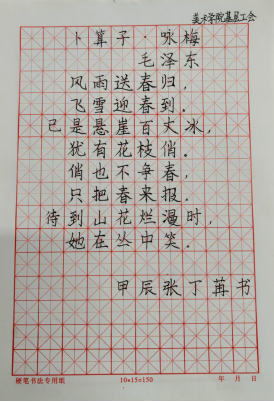 美术学院基层工会
卜算子·咏梅
毛泽东
风雨送春归,
飞雪迎春到.
已是悬崖百丈冰,
犹有花枝俏.
俏也不争春,
只把春来报.
待到山花烂漫时,
她在丛中笑.
甲辰张丁苒书
硬笔书法专用纸 10×15=150 年 月 日